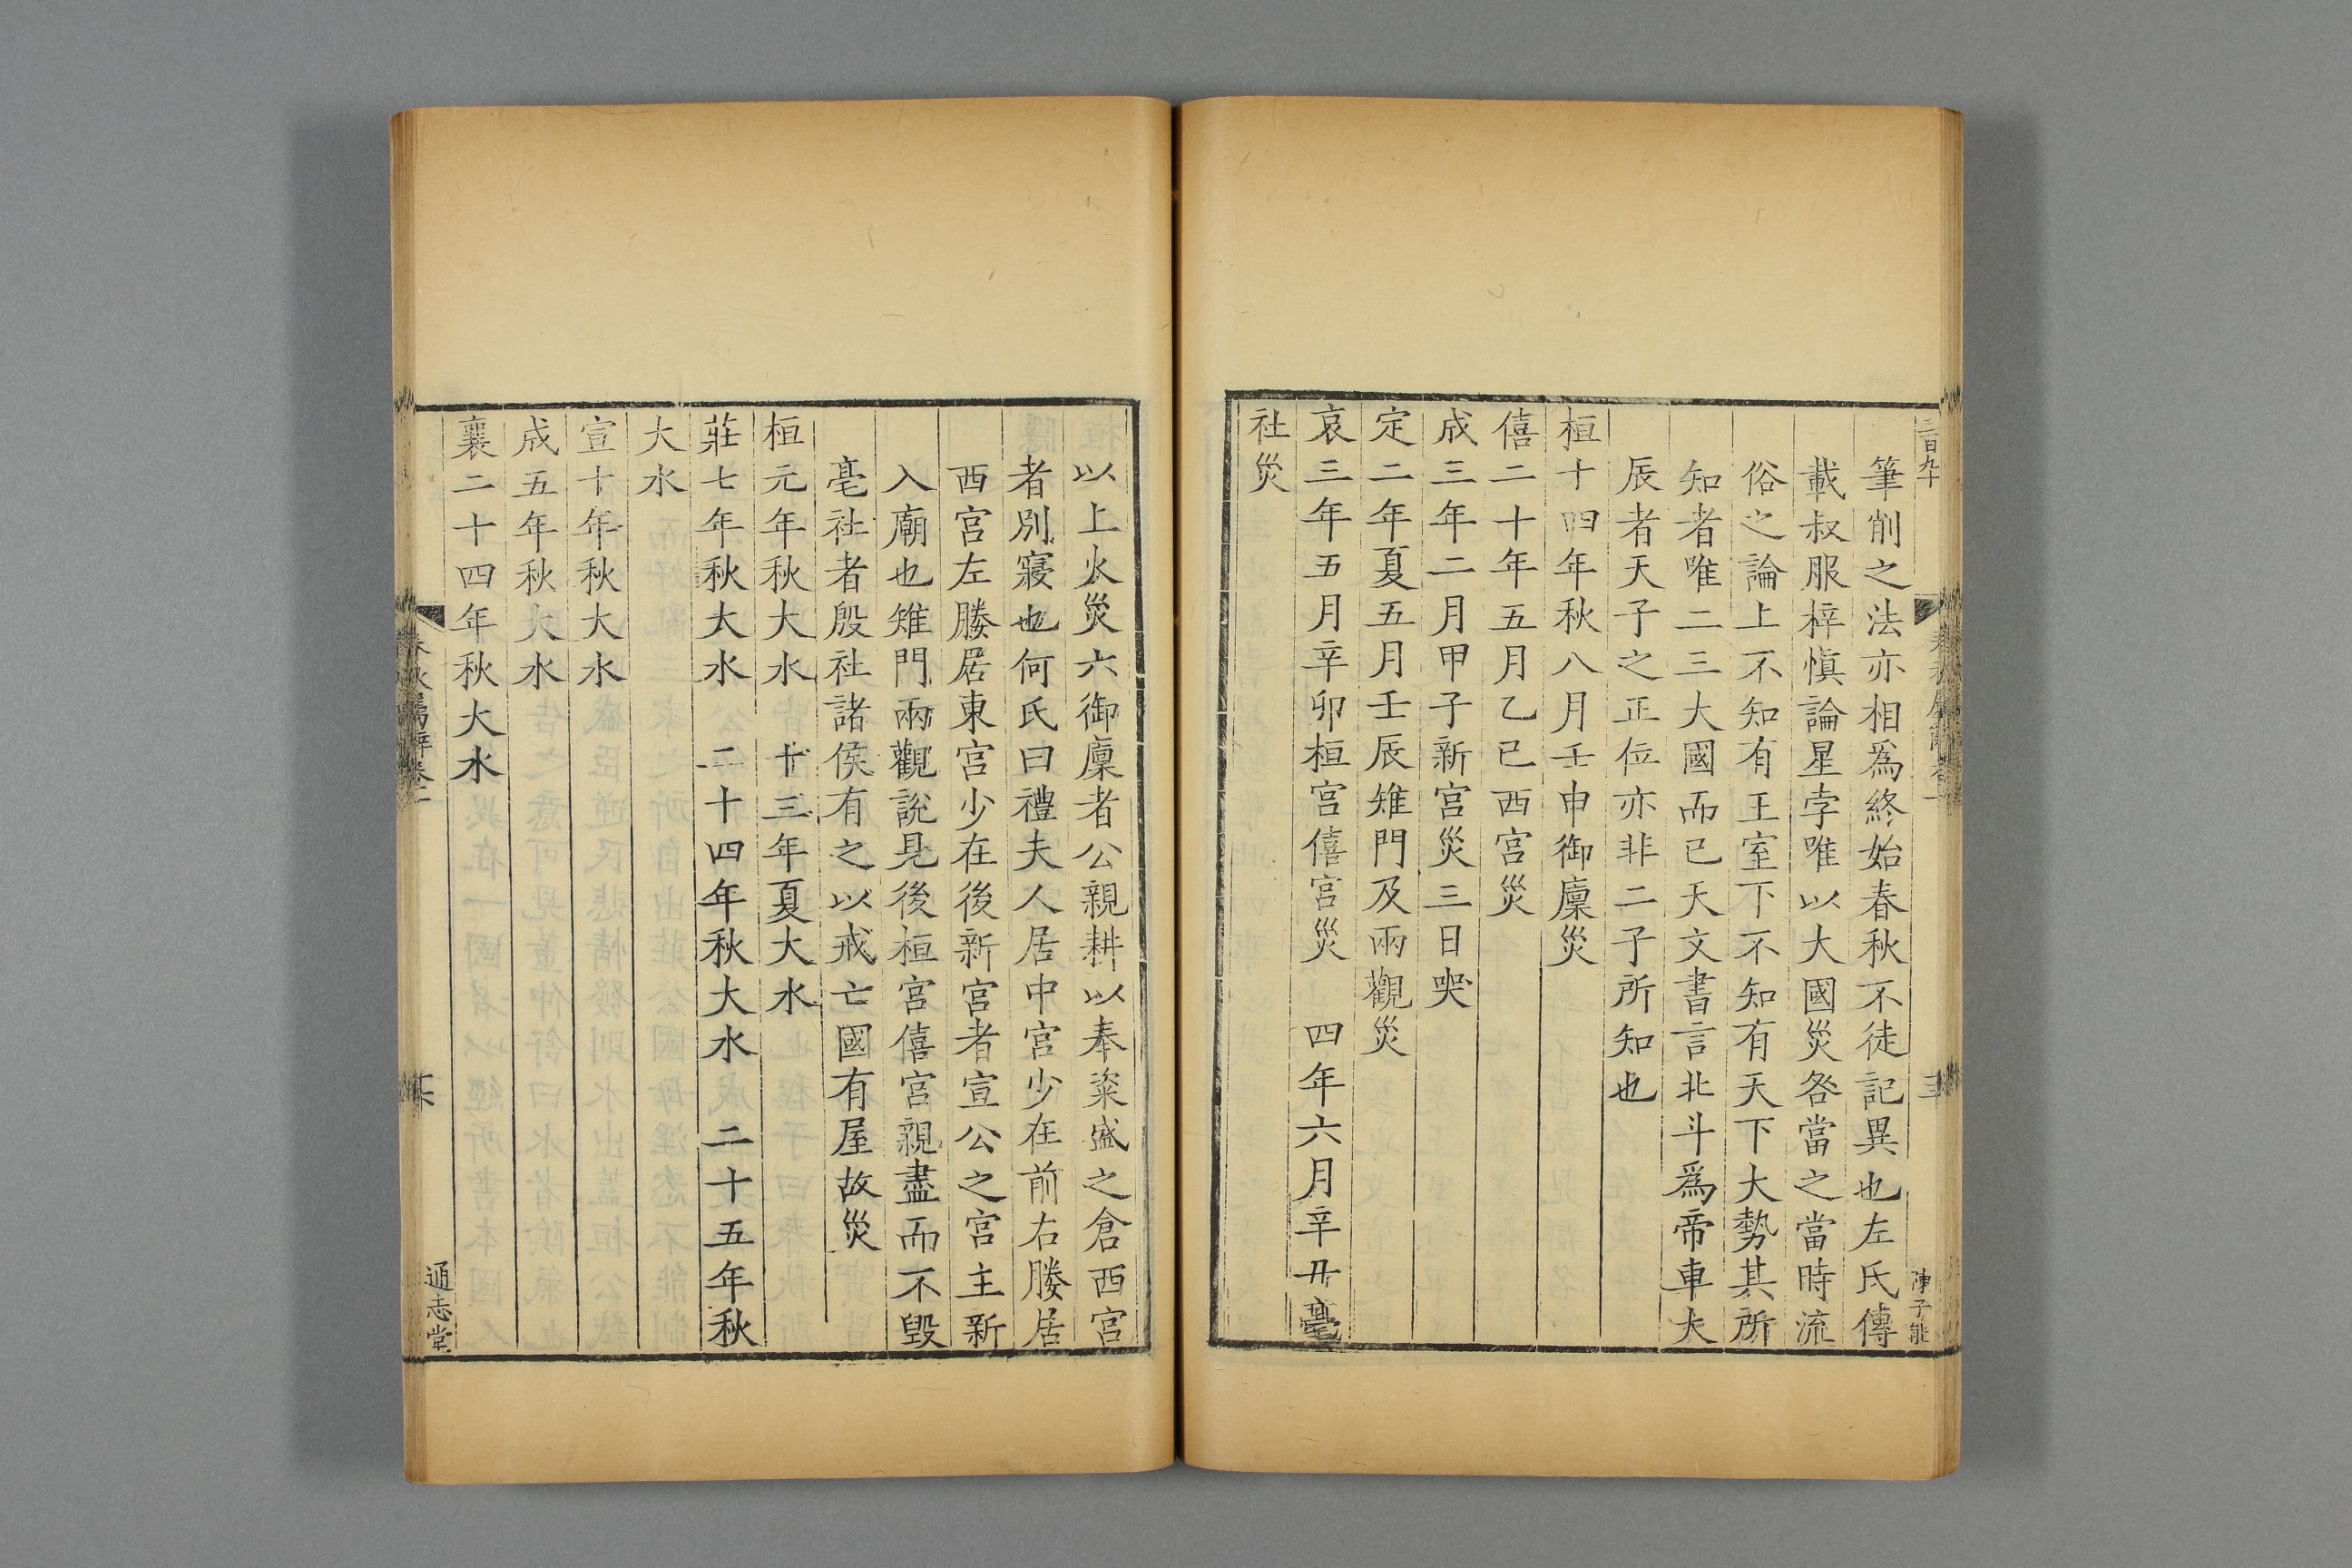 三百九十
筆削之法亦相爲終始春秋不徒記異也左氏傳
載叔服梓愼論星孛唯以大國災咎當之當時流
俗之論上不知有王室下不知有天下大勢其所
知者唯二三大國而已天文書言北斗爲帝車大
辰者天子之正位亦非二子所知也
桓十四年秋八月壬申御廩災
僖二十年五月乙巳西宮災
成三年二月甲子新宮災三日哭
定二年夏五月壬辰雉門及兩觀災
哀三年五月辛卯桓宮僖宮災 四年六月辛丑亳
社災
以上火災六御廩者公親耕以奉粢盛之倉西宮
者別寢也何氏曰禮夫人居中宮少在前右媵居
西宮左媵居東宮少在後新宮者宣公之宮主新
入廟也雉門兩觀說見後桓宮僖宮親盡而不毀
亳社者殷社諸侯有之以戒亡國有屋故災
桓元年秋大水 十三年夏大水
莊七年秋大水 二十四年秋大水 二十五年秋
大水
宣十年秋大水
成五年秋大水
襄二十四年秋大水
春秋屬辭卷十
通志堂